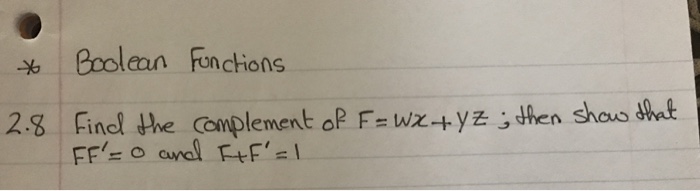 * Boolean Functions
2.8 Find the complement of F = wx + yz ; then show that
FF' = 0 and F+F' = 1